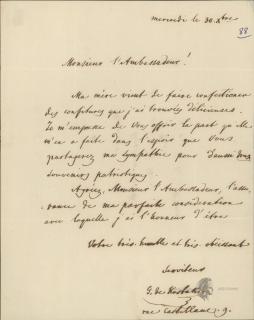 mercredi le 30 Xbre
88
Monsieur l'Ambassadeur!
Ma mère vient de faire confectionner
des confitures que j'ai trouvées délicieuses.
Je m'empresse de vous offrir la part qu'elle
m'en a faite dans l'espoir que vous
partagerez ma sympathie pour d'aussi doux
souvenirs patriotiques!
Agréez, Monsieur l'Ambassadeur, l'assu-
rance de ma parfaite considération
avec laquelle j'ai l'honneur d'être
Votre très humble et très obéissant
Serviteur
G. de
rue Castellane 9.